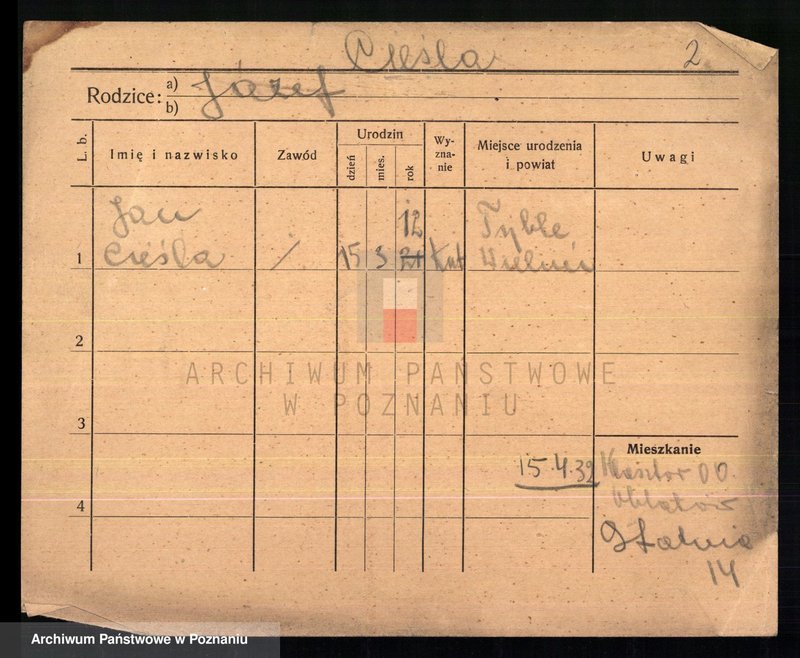 Cieśla
2
Rodzice: a) Józef
b)
L. b.
Imię i nazwisko
Zawód
Urodzin
dzień
mies.
rok
Wy-
zna-
nie
Miejsce urodzenia
i powiat
Uwagi
Jan
12
Tyble
1
Cieśla
/
15
3
21
Kat
Wieluń
2
ARCHIWUM PAŃSTWOWE
W POZNANIU
3
Mieszkanie
15.4.32
Klasztor OO.
Oblatów
4
14
Archiwum Państwowe w Poznaniu